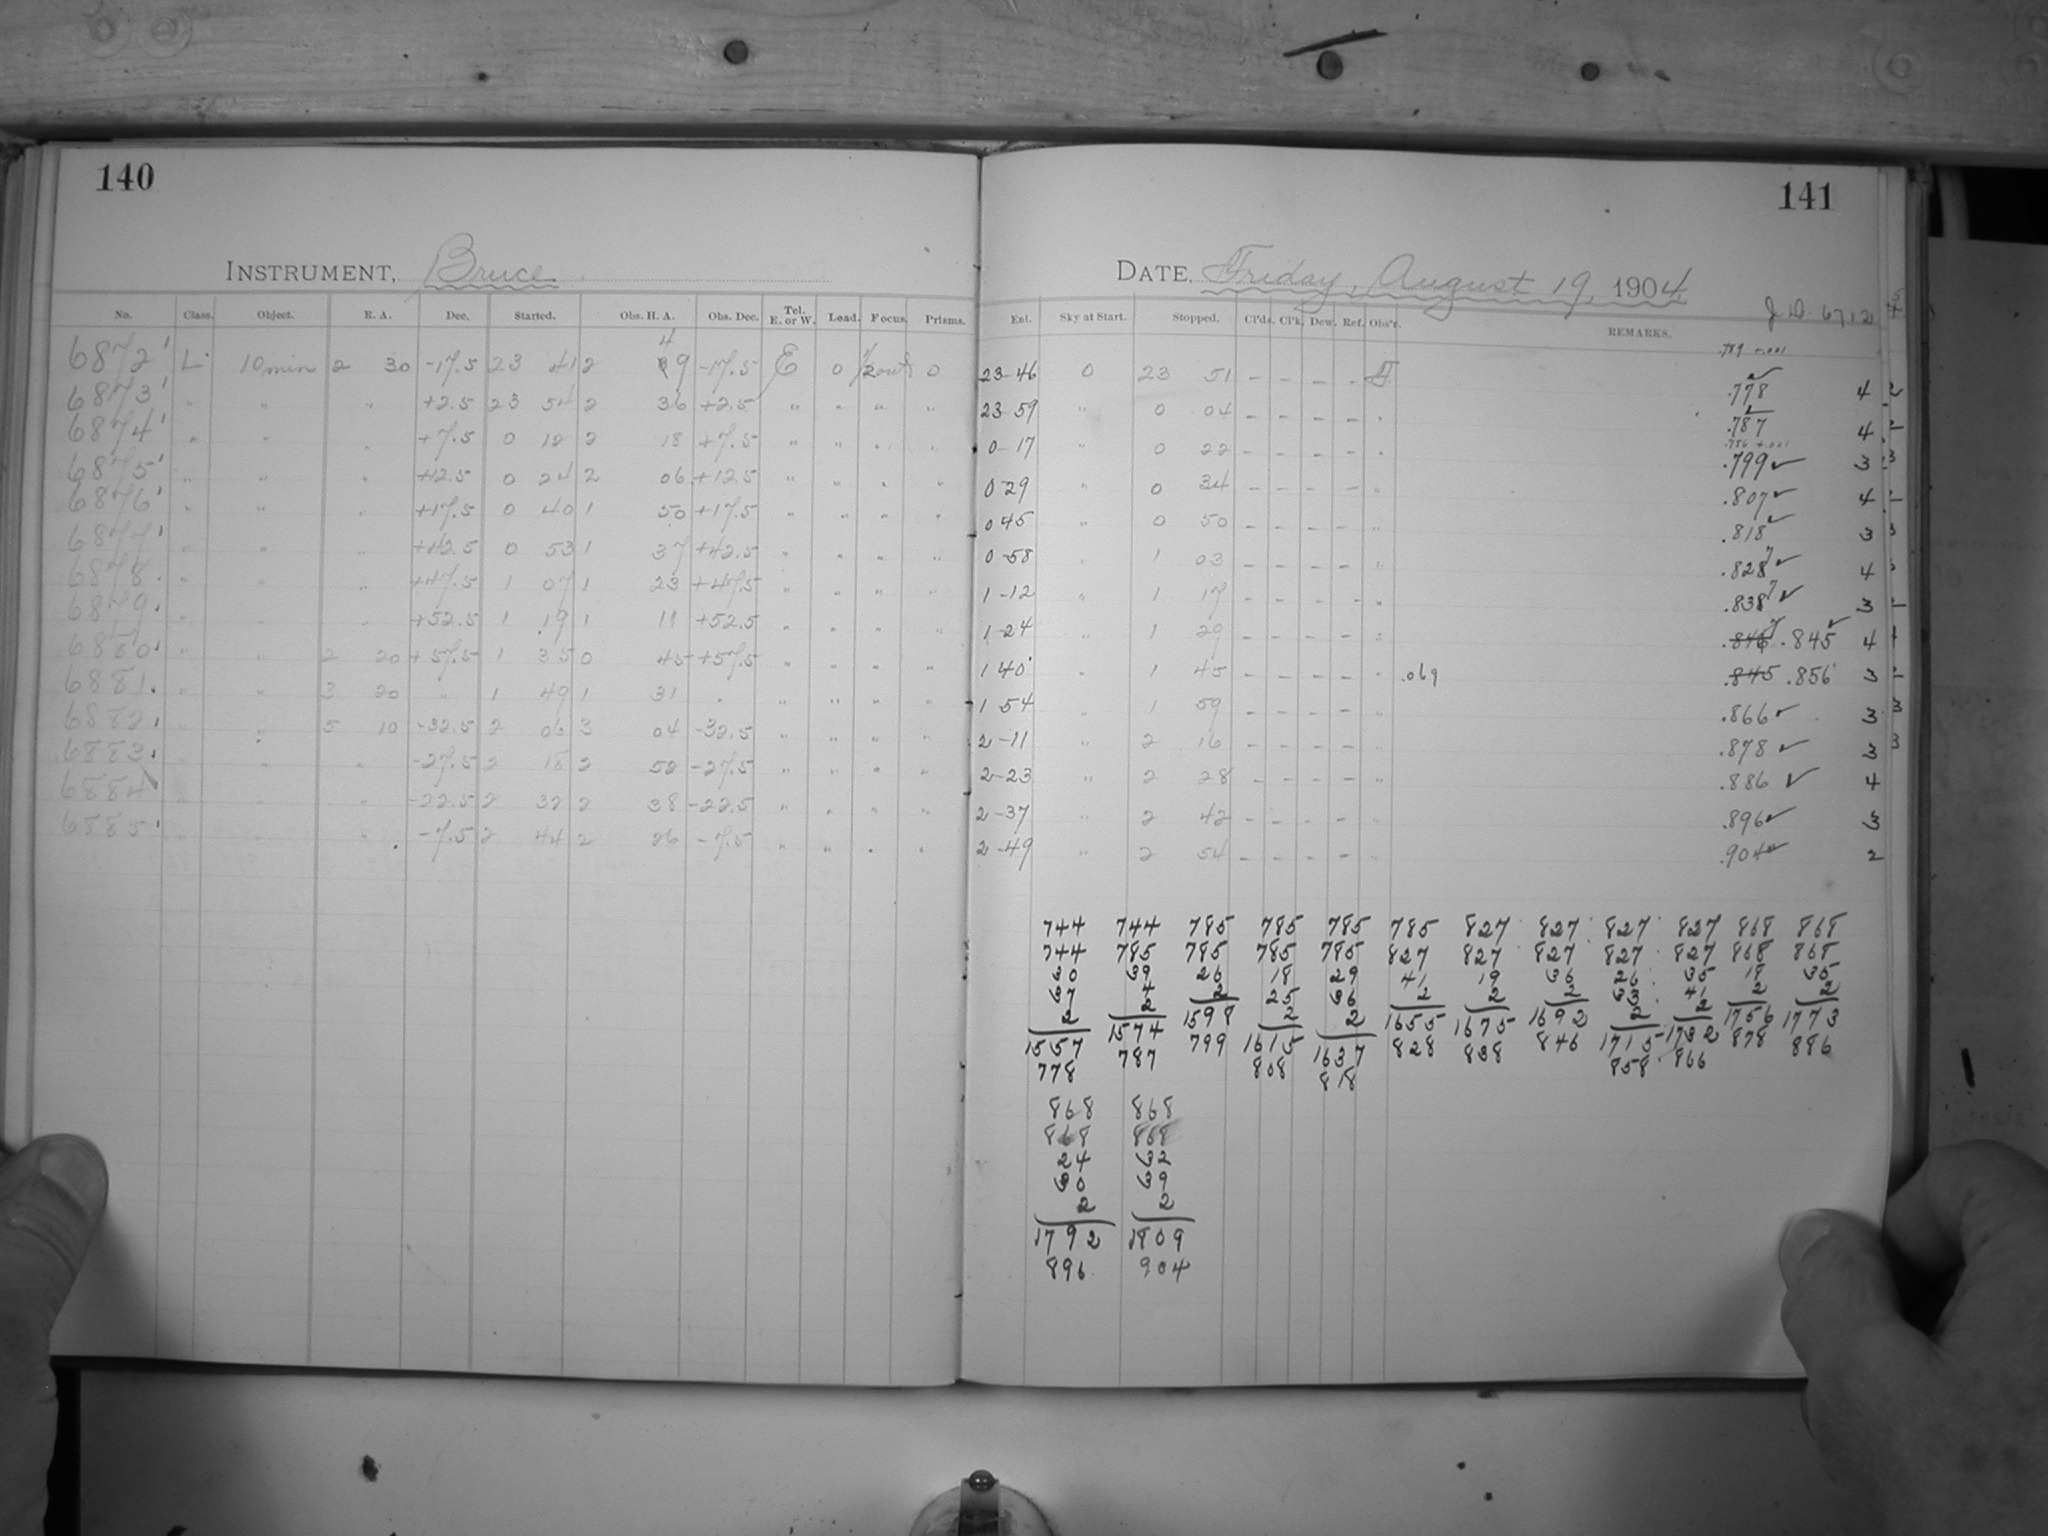 140
141
INSTRUMENT, Bruce
DATE, Friday, August 19, 1904
J.D. 6712
No. Class. Object. R. A. Dec. Started. Obs. H. A. Obs. Dec. Tel. E. or W. Lead. Focus. Prisms. Enl. Sky at Start. Stopped. Cl'ds. Cl'k. Dew. Ref. Obs'r. REMARKS.
.789 +.001
6872 L 10 min 2 30 -17.5 23 41 2 49 -17.5 E 0 0 23-46 0 23 51 - - - - .778 4
6873 " " " +2.5 23 54 2 36 +2.5 " " " " 23 59 " 0 04 - - - - " .787 4
6874 " " " +7.5 0 12 2 18 +7.5 " " " " 0-17 " 0 22 - - - - " .799 3
6875 " " " +12.5 0 24 2 06 +12.5 " " " " 0 29 " 0 34 - - - - " .807 4
6876 " " " +17.5 0 40 1 50 +17.5 " " " " 0 45 " 0 50 - - - - " .818 3
6877 " " " +42.5 0 53 1 37 +42.5 " " " " 0-58 " 1 03 - - - - " .828 7 4
6878 " " " +47.5 1 07 1 23 +47.5 " " " " 1-12 " 1 17 - - - - " .838 7 3
6879 " " " +52.5 1 19 1 11 +52.5 " " " " 1-24 " 1 29 - - - - " .846 .845 4
6880 " " 2 20 +57.5 1 35 0 45 +57.5 " " " " 1 40 " 1 45 - - - - " .069 .845 .856 3
6881 " " 3 20 " 1 49 1 31 " " " " " 1 54 " 1 59 - - - - " .866 3
6882 " " 5 10 -32.5 2 06 3 04 -32.5 " " " " 2-11 " 2 16 - - - - " .878 3
6883 " " " -27.5 2 18 2 52 -27.5 " " " " 2-23 " 2 28 - - - - " .886 4
6884 " " " -22.5 2 32 2 38 -22.5 " " " " 2-37 " 2 42 - - - - " .896 3
6885 " " " -7.5 2 44 2 26 -7.5 " " " " 2-49 " 2 54 - - - - " .904 2
744 744 785 785 785 785 827 827 827 827 868 868
744 785 785 785 785 827 827 827 827 827 868 868
30 39 26 18 29 41 19 36 26 35 18 35
37 4 2 25 36 2 2 2 33 41 2 2
2 2 1598 2 2 1655 1675 1692 2 2 1756 1773
1557 1574 799 1615 1637 828 838 846 1715 1732 878 886
778 787 808 818 858 866
868 868
868 868
24 32
30 39
2 2
1792 1809
896 904